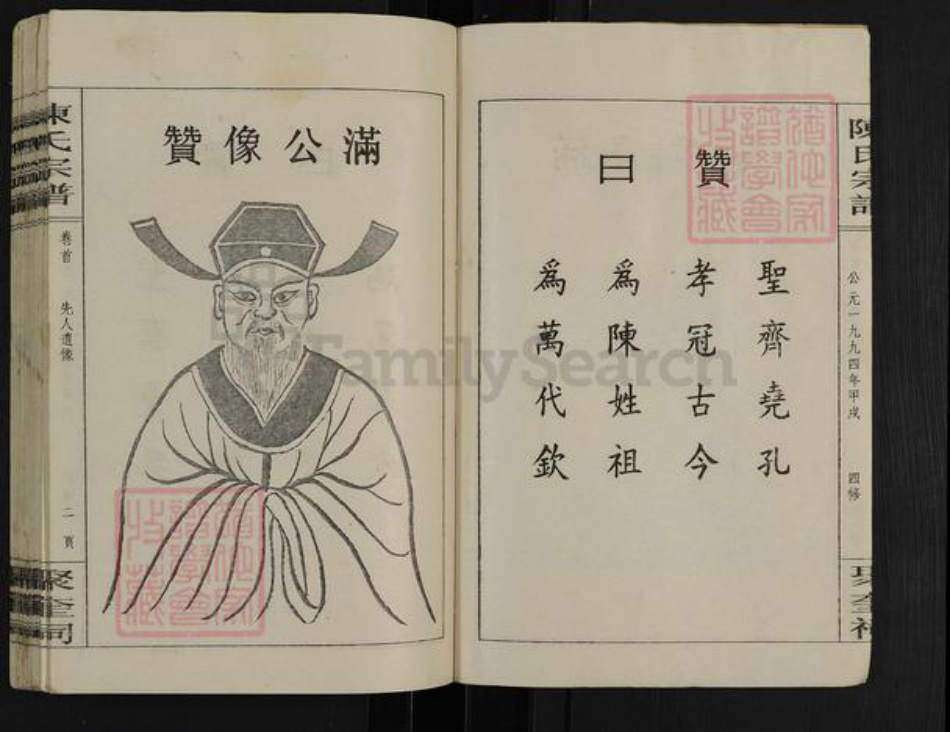 陳氏宗譜
公元一九九四年甲戌
四修
贊曰
聖齊堯孔
孝冠古今
爲陳姓祖
爲萬代欽
滿公像贊
陳氏宗譜
卷首
先人遺像
二頁
聚奎祠
FamilySearch